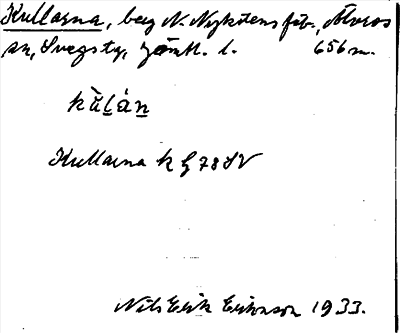 Kullarna, berg N. Nyköltens fäb., Älvros
sn, Svegs tg, Jämtl. l. 656 m.
kùlàn
Kullarna k G 78 SV
Nils Erik Erikson 1933.